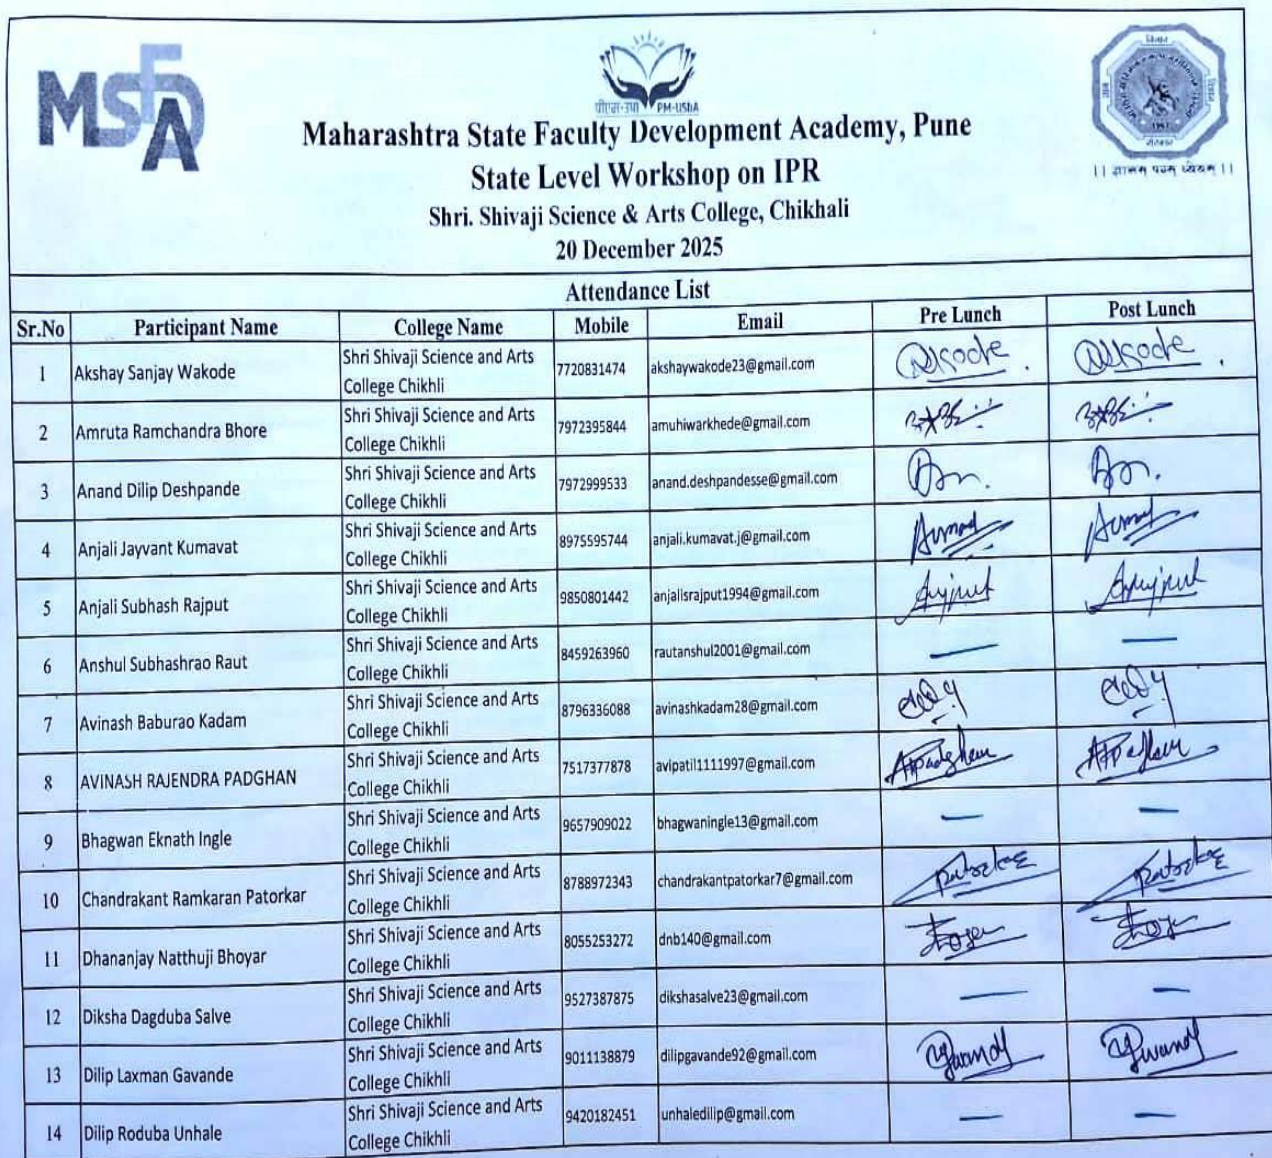 MSFDA
पीएम-उषा PM-USHA
Maharashtra State Faculty Development Academy, Pune
State Level Workshop on IPR
Shri. Shivaji Science & Arts College, Chikhali
20 December 2025
Attendance List
Sr.No Participant Name College Name Mobile Email Pre Lunch Post Lunch
1 Akshay Sanjay Wakode Shri Shivaji Science and Arts College Chikhli 7720831474 akshaywakode23@gmail.com
2 Amruta Ramchandra Bhore Shri Shivaji Science and Arts College Chikhli 7972395844 amuhiwarkhede@gmail.com
3 Anand Dilip Deshpande Shri Shivaji Science and Arts College Chikhli 7972999533 anand.deshpandesse@gmail.com
4 Anjali Jayvant Kumavat Shri Shivaji Science and Arts College Chikhli 8975595744 anjali.kumavat.j@gmail.com
5 Anjali Subhash Rajput Shri Shivaji Science and Arts College Chikhli 9850801442 anjalisrajput1994@gmail.com
6 Anshul Subhashrao Raut Shri Shivaji Science and Arts College Chikhli 8459263960 rautanshul2001@gmail.com — —
7 Avinash Baburao Kadam Shri Shivaji Science and Arts College Chikhli 8796336088 avinashkadam28@gmail.com
8 AVINASH RAJENDRA PADGHAN Shri Shivaji Science and Arts College Chikhli 7517377878 avipatil1111997@gmail.com
9 Bhagwan Eknath Ingle Shri Shivaji Science and Arts College Chikhli 9657909022 bhagwaningle13@gmail.com — —
10 Chandrakant Ramkaran Patorkar Shri Shivaji Science and Arts College Chikhli 8788972343 chandrakantpatorkar7@gmail.com
11 Dhananjay Natthuji Bhoyar Shri Shivaji Science and Arts College Chikhli 8055253272 dnb140@gmail.com
12 Diksha Dagduba Salve Shri Shivaji Science and Arts College Chikhli 9527387875 dikshasalve23@gmail.com — —
13 Dilip Laxman Gavande Shri Shivaji Science and Arts College Chikhli 9011138879 dilipgavande92@gmail.com
14 Dilip Roduba Unhale Shri Shivaji Science and Arts College Chikhli 9420182451 unhaledilip@gmail.com — —